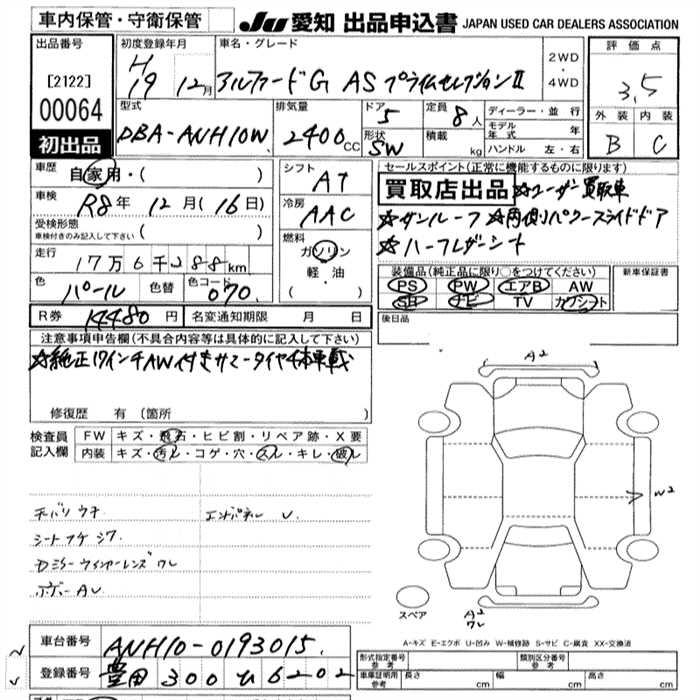 車内保管・守衛保管
JU 愛知 出品申込書 JAPAN USED CAR DEALERS ASSOCIATION
出品番号
[2122]
00064
初出品
初度登録年月
H19 12月
車名・グレード
アルファードG AS プライムセレクションⅡ
2WD
・
4WD
評価点
3.5
外装 内装
B C
型式
DBA-ANH10W
排気量
2400cc
ドア
5
形状
SW
定員
8人
積載
kg
ディーラー・並行
モデル年式 年
ハンドル 左・右
車歴
自家用・( )
車検
R8年 12月(16日)
受検形態
車検付きのみ記入して下さい ( )
走行
17万6千288km
色
パール
色替
色コード
070
シフト
AT
冷房
AAC
燃料
ガソリン
軽・油
( )
セールスポイント(正常に機能するものに限ります)
買取店出品 ☆ユーザー買取車
☆サンルーフ ☆両側パワースライドドア
☆ハーフレザーシート
装備品(純正品に限り○をつけてください)
PS PW エアB AW
SR ナビ TV カワシート
新車保証書
後日品
R券 14480円
名変通知期限 月 日
注意事項申告欄(不具合内容等は具体的に記入して下さい)
☆純正17インチAW付きサマータイヤ4本車載
修復歴 有(箇所 )
検査員
記入欄
FW キズ・飛石・ヒビ割・リペア跡・X要
内装 キズ・汚れ・コゲ・穴・スレ・キレ・破レ
エンドパネル U
シートコゲ シワ
Dミラーウインカーレンズ ワレ
ボデー AU
A2
W2
スペア
A2
ワレ
A-キズ E-エクボ U-凹み W-補修跡 S-サビ C-腐食 XX-交換済
車台番号 ANH10-0193015
登録番号 豊田 300 ひ 6202
形式指定番号
参考
類別区分番号
参考
車庫証明用
参考
長さ cm 幅 cm 高さ cm